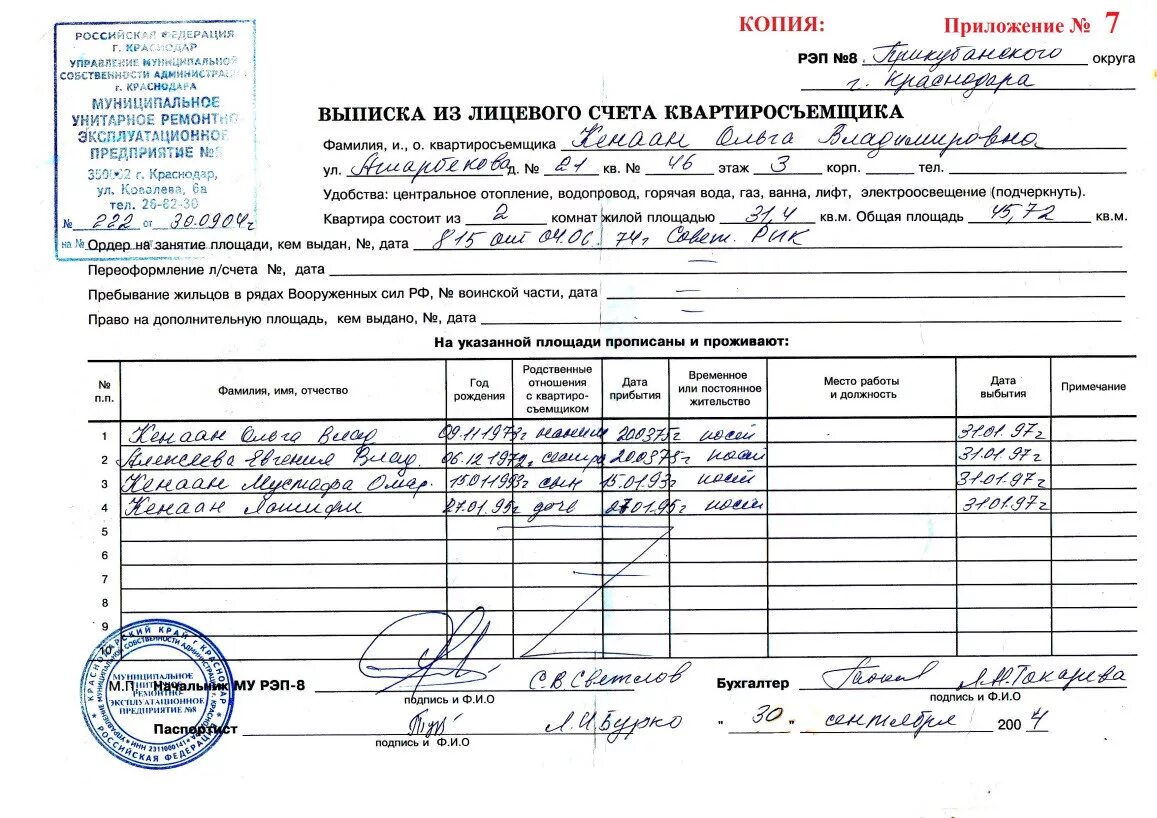 КОПИЯ: Приложение № 7
РОССИЙСКАЯ ФЕДЕРАЦИЯ
г. КРАСНОДАР
УПРАВЛЕНИЕ МУНИЦИПАЛЬНОЙ
СОБСТВЕННОСТИ АДМИНИСТРАЦИ
г. КРАСНОДАРА
МУНИЦИПАЛЬНОЕ
УНИТАРНОЕ РЕМОНТНО-
ЭКСПЛУАТАЦИОННОЕ
ПРЕДПРИЯТИЕ №8
350062 г. Краснодар,
ул. Ковалева, 6а
тел. 26-82-30
№ 222 от 30.09.04г
на № от
РЭП №8 Прикубанского округа
г. Краснодара
ВЫПИСКА ИЗ ЛИЦЕВОГО СЧЕТА КВАРТИРОСЪЕМЩИКА
Фамилия, и., о. квартиросъемщика Кенаан Ольга Владимировна
ул. Атарбекова д. № 21 кв. № 46 этаж 3 корп. тел.
Удобства: центральное отопление, водопровод, горячая вода, газ, ванна, лифт, электроосвещение (подчеркнуть).
Квартира состоит из 2 комнат жилой площадью 31,4 кв.м. Общая площадь 45,72 кв.м.
Ордер на занятие площади, кем выдан, №, дата 815 от 04.06.74г Совет. РИК
Переоформление л/счета №, дата —
Пребывание жильцов в рядах Вооруженных сил РФ, № воинской части, дата —
Право на дополнительную площадь, кем выдано, №, дата —
На указанной площади прописаны и проживают:
№ п.п. Фамилия, имя, отчество Год рождения Родственные отношения с квартиросъемщиком Дата прибытия Временное или постоянное жительство Место работы и должность Дата выбытия Примечание
1 Кенаан Ольга Влад 09.11.1973г наним 200375г 31.01.97г
2 Алексеева Евгения Влад. 06.12.1972г сестра 200375г 31.01.97г
3 Кенаан Мустафа Омар. 15011993г сын 15.01.93г 31.01.97г
4 Кенаан 27.01.95г дочь 27.01.95г 31.01.97г
5
6
7
8
9
10
М.П. Начальник МУ РЭП-8 С.В.Светлов Бухгалтер Л.Н.Токарева
подпись и Ф.И.О подпись и Ф.И.О
Паспортист Л.И.Бурко " 30 " сентября 2004
подпись и Ф.И.О
КРАСНОДАРСКИЙ КРАЙ г. КРАСНОДАР
РОССИЙСКАЯ ФЕДЕРАЦИЯ
ИНН 2311000141
МУНИЦИПАЛЬНОЕ
УНИТАРНОЕ
РЕМОНТНО-
ЭКСПЛУАТАЦИОННОЕ
ПРЕДПРИЯТИЕ №8